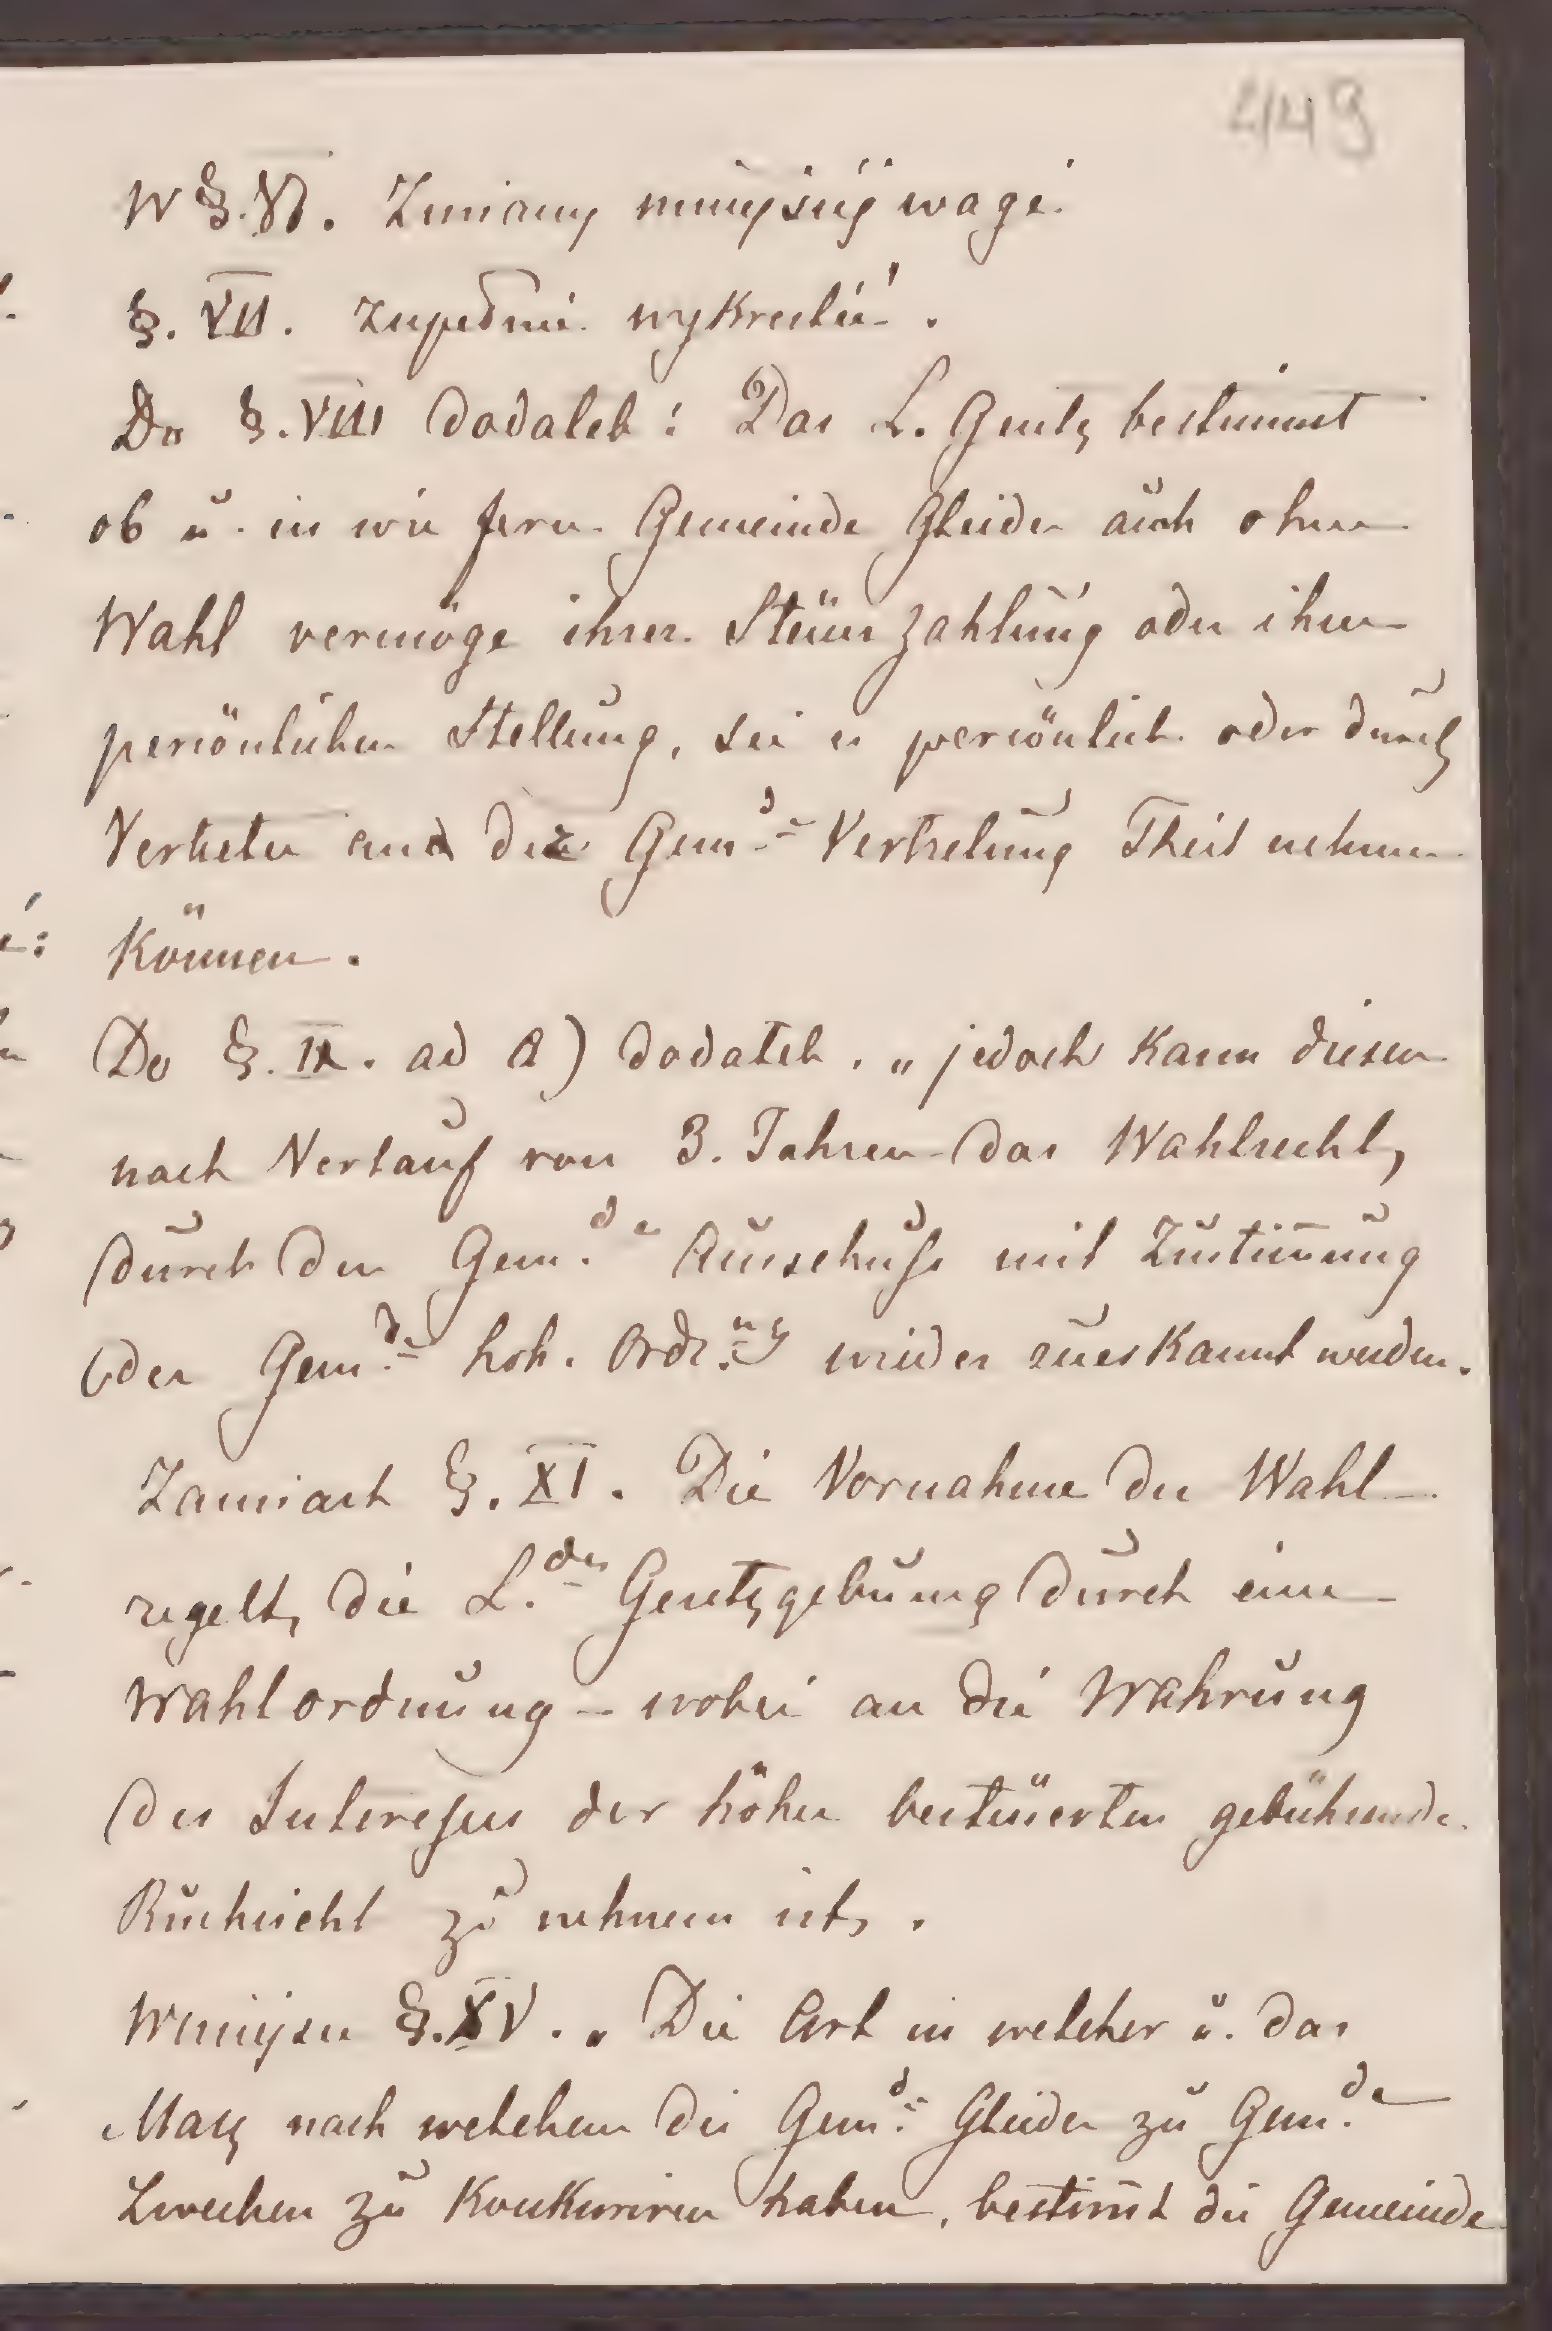 449
W §. VI. Zmiany mniejszej wagi.
§. VII. zupełnie wykreślić.
Do §. VIII dodatek: Das L. Gesetz bestimmt
ob u. in wie fern Gemeinde Glieder auch ohne
Wahl vermöge ihrer Steuerzahlung oder ihrer
persönlichen Stellung, sei es persönlich oder durch
Vertreter an der Gem.de Vertretung Theil nehmen
können.
Do §. IX. ad a) dodatek. „jedoch kann diesen
nach Verlauf von 3. Jahren das Wahlrecht,
durch den Gem.de Ausschuß mit Zustim̄ung
der Gem.de höh. Ord.ng wieder zuerkannt werden.
Zamiast §. XI. Die Vornahme der Wahl
regelt, die L.des Gesetzgebung durch eine
Wahlordnung – wobei an die Wahrung
der Interessen der höher besteuerten gebührende
Rücksicht zu nehmen ist.
W miejsce §. XV. „Die Art in welcher u. das
Mass nach welchem die Gem.de Glieder zu Gem.de
Zwecken zu konkuriren haben, bestim̄t die Gemeinde